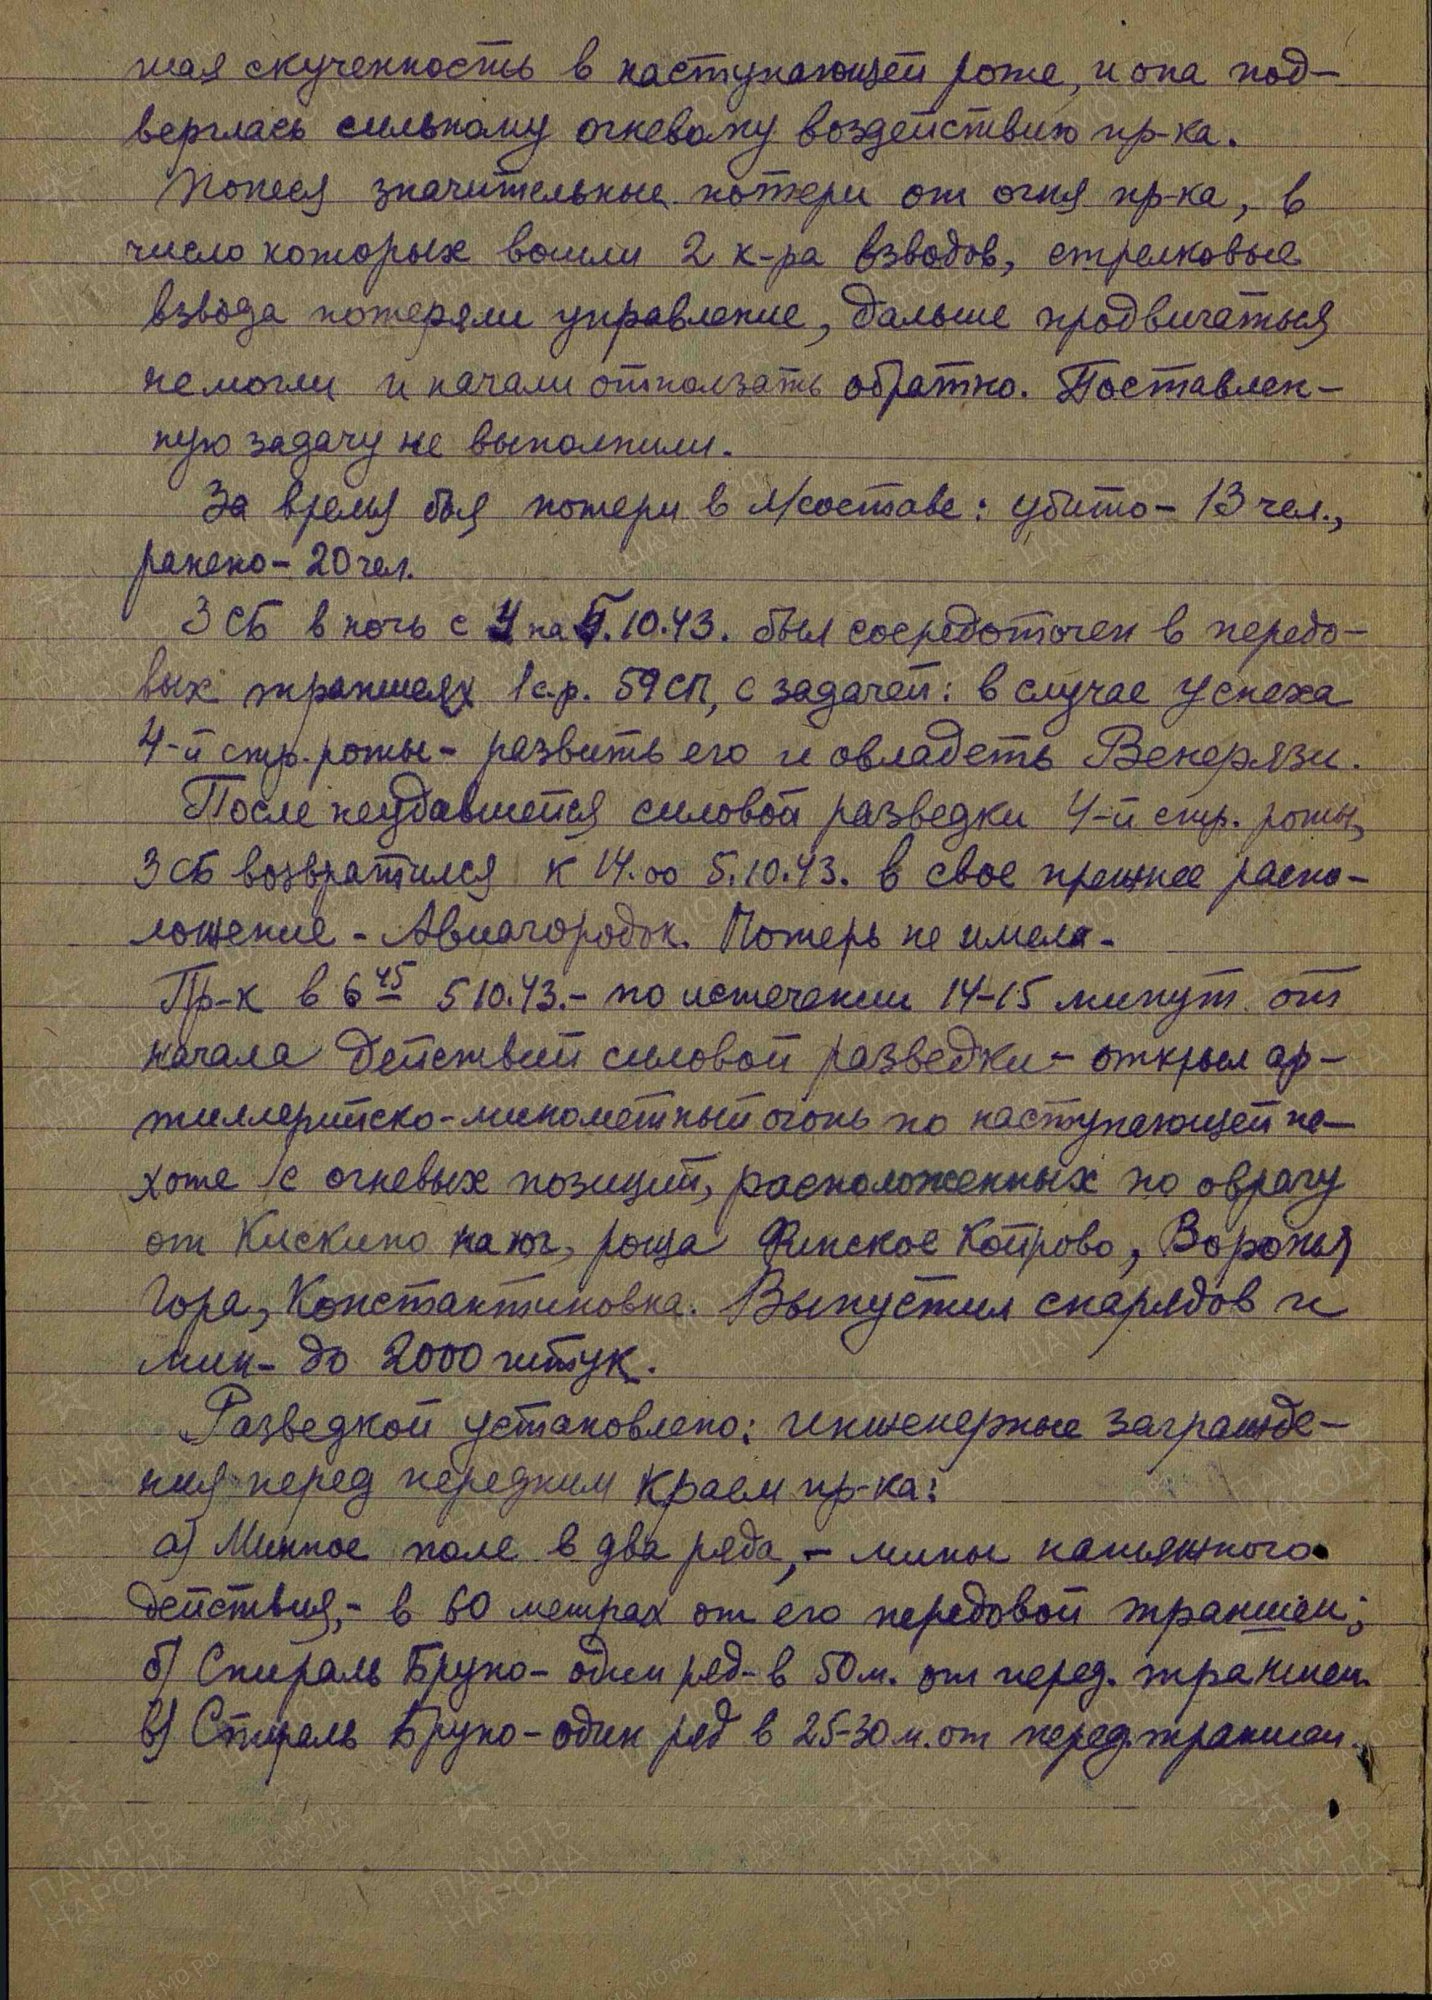 шая скученность в наступающей роте, и она под-
верглась сильному огневому воздействию пр-ка.
Понеся значительные потери от огня пр-ка, в
число которых вошли 2 к-ра взводов, стрелковые
взвода потеряли управление, дальше продвигаться
не могли и начали отползать обратно. Поставлен-
ную задачу не выполнили.
За время боя потери в л/составе: убито - 13 чел.,
ранено - 20 чел.
3 СБ в ночь с 4 на 5.10.43. был сосредоточен в передо-
вых траншеях 1 с.р. 59 СП, с задачей: в случае успеха
4-й стр. роты - развить его и овладеть Венерязи.
После неудавшейся силовой разведки 4-й стр. роты,
3 СБ возвратился к 14.00 5.10.43. в свое прежнее распо-
ложение - Авиагородок. Потерь не имела.
Пр-к в 6 45 5 10.43. - по истечении 14-15 минут от
начала действий силовой разведки - открыл ар-
тиллерийско-минометный огонь по наступающей пе-
хоте с огневых позиций, расположенных по оврагу
от Кискино на юг, роща Финское Койрово, Воронья
Гора, Константиновка. Выпустил снарядов и
мин - до 2000 штук.
Разведкой установлено: инженерные загражде-
ния перед передним краем пр-ка:
а) Минное поле в два ряда, - мины натяжного
действия, - в 60 метрах от его передовой траншеи;
б) Спираль Бруно - один ряд - в 50 м. от перед. траншеи.
в) Спираль Бруно - один ряд в 25-30 м. от перед. траншеи.
ПАМЯТЬ НАРОДА
ЦАМО.РФ